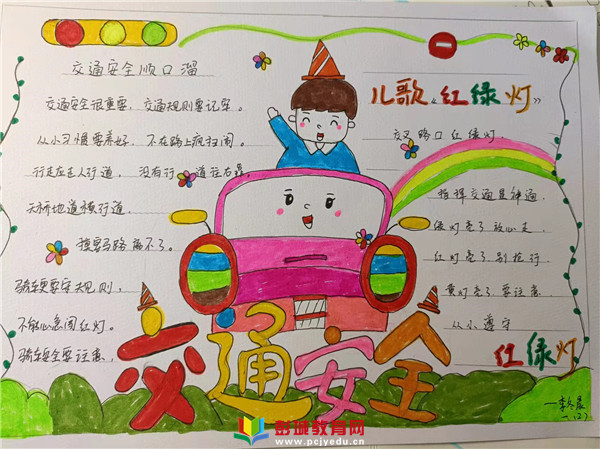 交通安全顺口溜
交通安全很重要，交通规则要记牢。
从小习惯要养好，不在路上疯打闹。
行走应走人行道，没有行道往右靠。
天桥地道横行道，
横穿马路离不了。
骑车更要守规则，
不能心急闯红灯。
骑车安全要注意，
儿歌《红绿灯》
交叉路口红绿灯，
指挥交通显神通，
绿灯亮了放心走，
红灯亮了别抢行，
黄灯亮了要注意，
从小遵守
红绿灯
交通安全
一(2)
彭城教育网
www.pcjyedu.cn